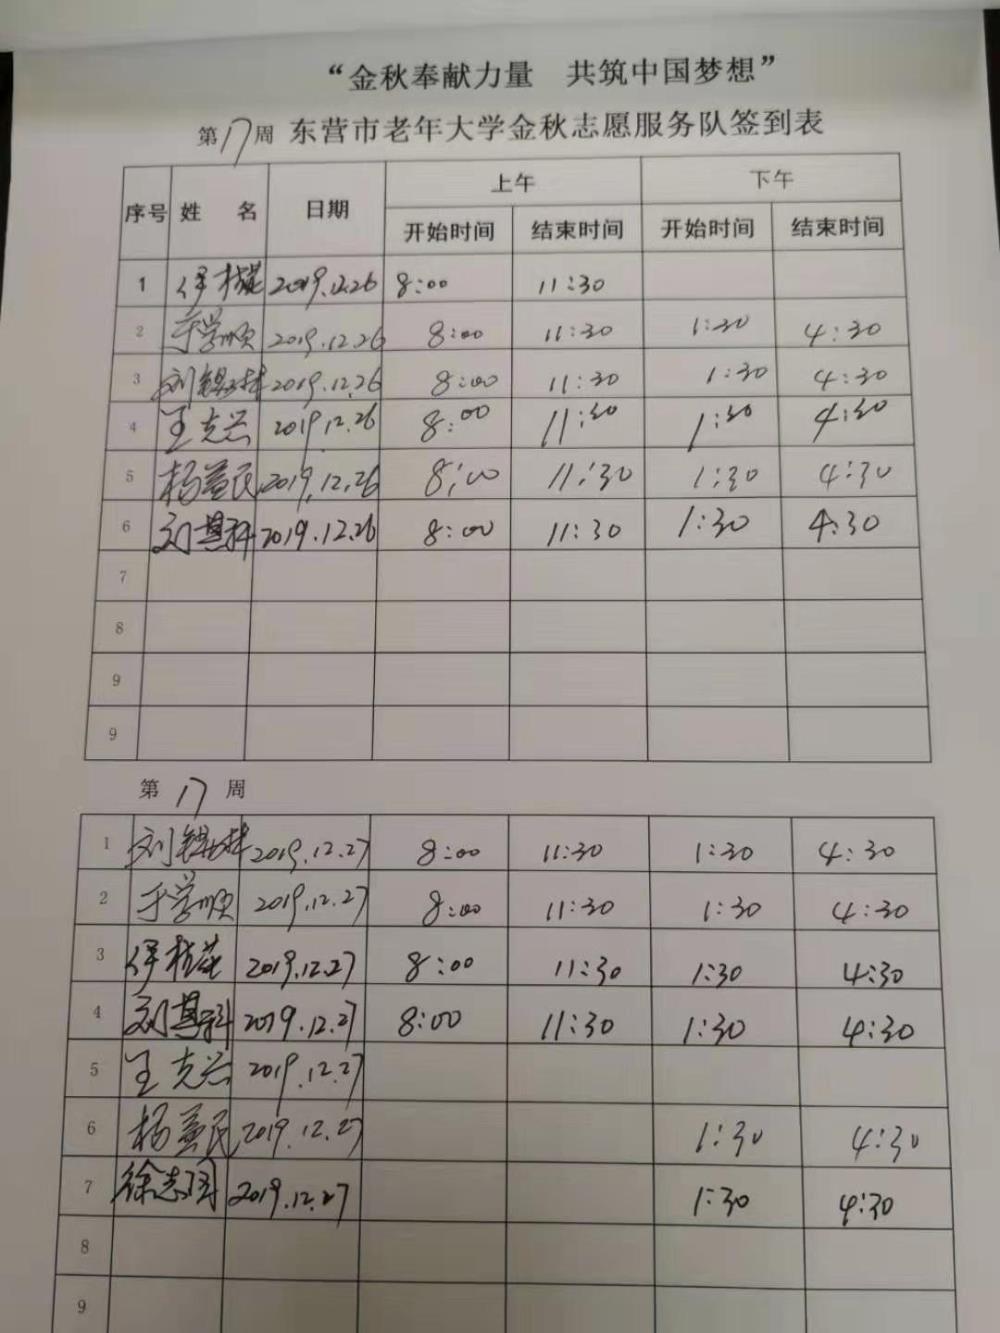 “金秋奉献力量 共筑中国梦想”
第17周 东营市老年大学金秋志愿服务队签到表
序号 姓 名 日期 上午 下午
开始时间 结束时间 开始时间 结束时间
1 伊桂花 2019.12.26 8:00 11:30
2 于学顺 2019.12.26 8:00 11:30 1:30 4:30
3 刘锡林 2019.12.26 8:00 11:30 1:30 4:30
4 王克兴 2019.12.26 8:00 11:30 1:30 4:30
5 杨益民 2019.12.26 8:00 11:30 1:30 4:30
6 刘其科 2019.12.26 8:00 11:30 1:30 4:30
7
8
9
9
第 17 周
1 刘锡林 2019.12.27 8:00 11:30 1:30 4:30
2 于学顺 2019.12.27 8:00 11:30 1:30 4:30
3 伊桂花 2019.12.27 8:00 11:30 1:30 4:30
4 刘其科 2019.12.27 8:00 11:30 1:30 4:30
5 王克兴 2019.12.27
6 杨益民 2019.12.27 1:30 4:30
7 徐志 2019.12.27 1:30 4:30
8
9